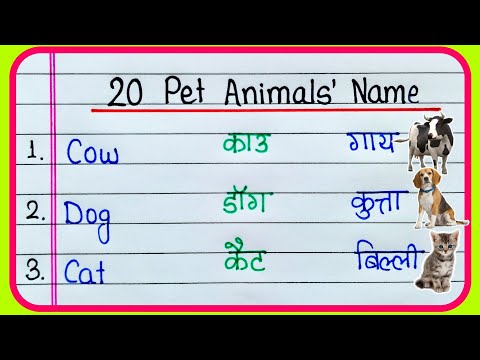 20 Pet Animals' Name
1. Cow काउ गाय
2. Dog डॉग कुत्ता
3. Cat कैट बिल्ली